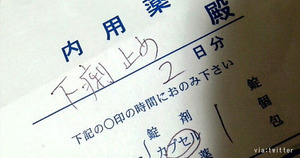 内用薬 殿
下剤止め 2日分
下記の○印の時間におのみ下さい
錠剤 錠
カプセル 個
薬 包
via:twitter